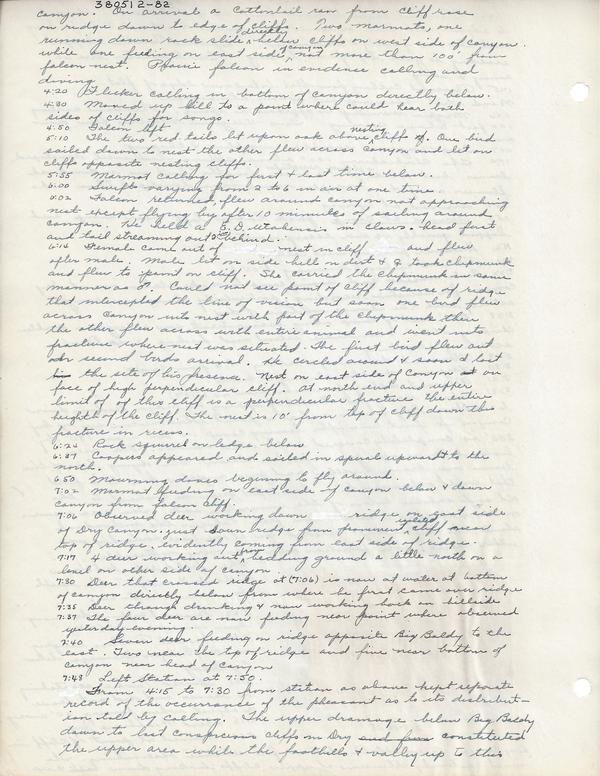 380512-82
canyon. On arrival a Cottontail ran from cliff rose
on ridge down to edge of cliffs. Two marmots, one
running down rock slide directly below cliffs on west side of canyon.
while one feeding on east side of canyon, not more than 100' from
falcon nest. Prairie falcon in evidence calling and
diving.
4:20 Flicker calling in bottom of canyon directly below.
4:30 Moved up hill to a point where could hear both
sides of cliffs for songs.
4:50 Falcon left
5:10 The two red tails let upon oak above nesting cliffs of. One bird
sailed down to nest the other flew across canyon and let on
cliffs opposite nesting cliffs.
5:55 Marmot calling for first & last time below.
6:00 Swifts varying from 2 to 6 in air at one time.
6:02 Falcon returned, flew around canyon not approaching
nest except flying by after 10 minutes of sailing around
canyon. He held a E. D. utahensis in claws. head first
and tail streaming out behind.
6:14 Female came out of nest in cliff and flew
after male. Male let on side hill in dirt & ♀ took chipmunk
and flew to point on cliff. She carried the chipmunk in same
manner as ♂. Could not see point of cliff because of ridge
that intercepted the line of vision but soon one bird flew
across canyon into nest with part of the chipmunk then
the other flew across with entire animal and went into
fracture where nest was situated. The first bird flew out
second birds arrival. He circled around & soon I lost
the site of his presence. Nest on east side of Canyon on
face of high perpendicular cliff. At north end and upper
limit of of this cliff is a perpendicular fracture the entire
heighth of the cliff. The nest is 10' from top of cliff down this
fracture in recess.
6:24 Rock squirrel on ledge below
6:37 Coopers appeared and sailed in spiral upward & to the
north.
6:50 Mourning doves begining to fly around.
7:02 Marmot feeding on east side of canyon below & down
canyon from falcon cliff.
7:06 Observed deer working down ridge on east side
of Dry Canyon, just down ridge from prominent isolated cliff near
top of ridge, evidently coming from east side of ridge.
7:17 4 deer working out from bedding ground a little north on a
level on other side of canyon
7:30 Deer that crossed ridge at (7:06) is now at water at bottom
of canyon directly below from where he first came over ridge
7:35 Deer through drinking & now working back on hillside
7:37 The four deer are now feeding near point where observed
yesterday evening.
7:40 Seven deer feeding on ridge opposite Big Baldy to the
east. Two near the top of ridge and five near bottom of
canyon near head of canyon
7:48 Left Station at 7:50.
From 4:15 to 7:30 from station as above kept separate
record of the occurrance of the pheasant as to its distribut-
ion told by calling. The upper drainage below Big Baldy
down to last conspicious cliffs on Dry constituted
the upper area while the foothills & valley up to this